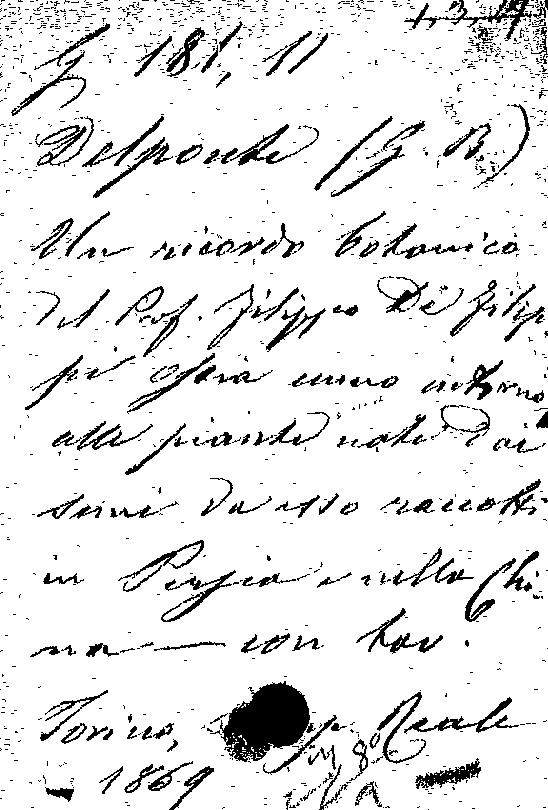 G 181, 11
Delponte (G. B.)
Un ricordo botanico
del Prof. Filippo De Filip
pi ossia cenno intorno
alle piante nate dai
semi da esso raccolti
in Persia e nella Chi
na — con tav.
Torino, Reale
1869 in 8°